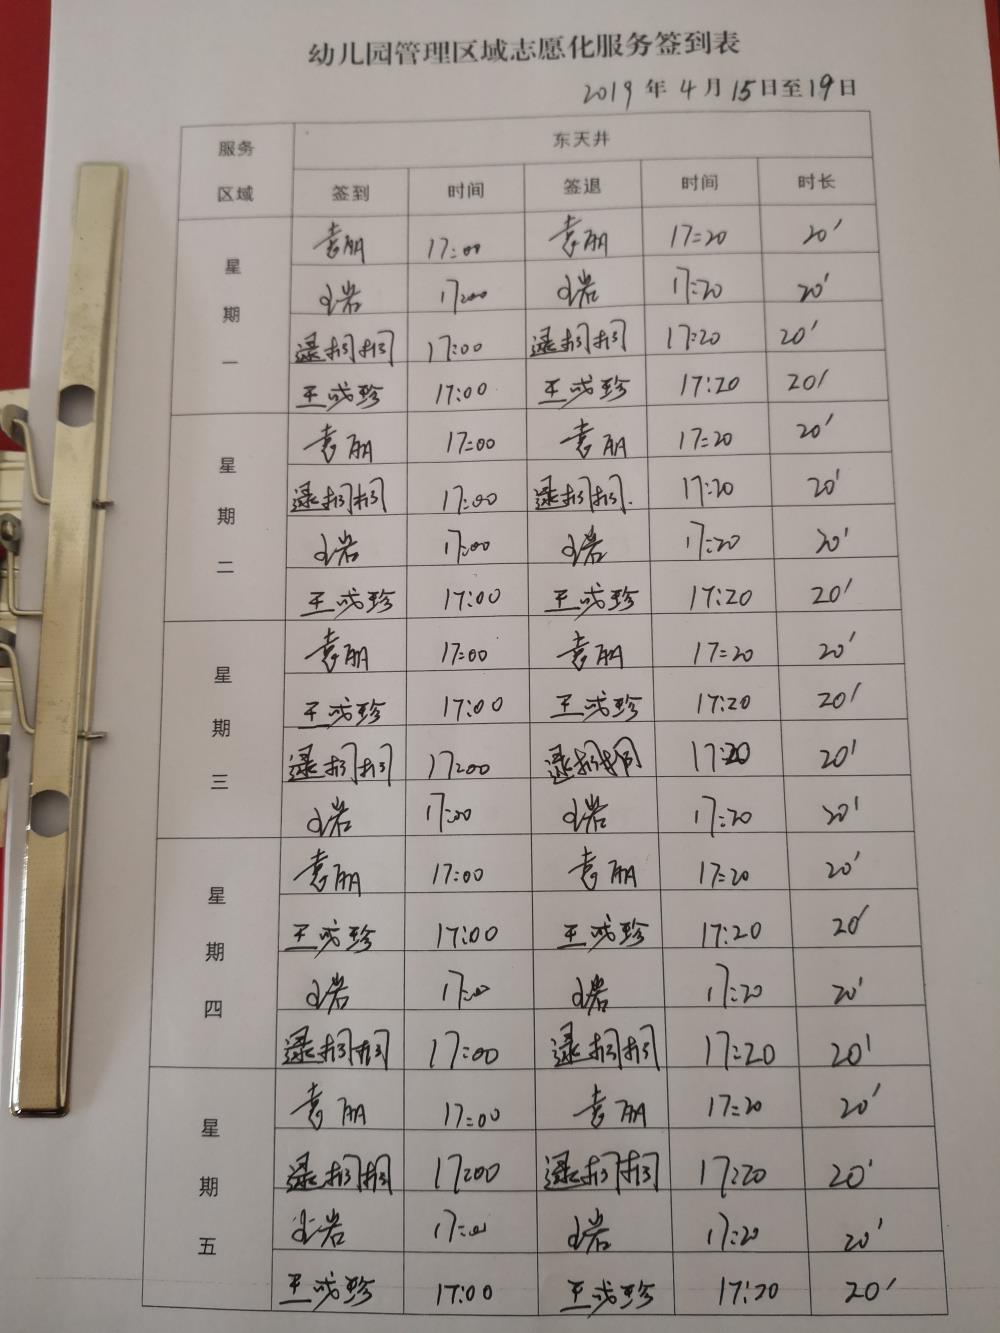 幼儿园管理区域志愿化服务签到表
2019年4月15日至19日
服务区域 东天井
签到 时间 签退 时间 时长
星期一
袁丽 17:00 袁丽 17:20 20'
岩 17:00 岩 17:20 20'
逯桐桐 17:00 逯桐桐 17:20 20'
王成珍 17:00 王成珍 17:20 20'
星期二
袁丽 17:00 袁丽 17:20 20'
逯桐桐 17:00 逯桐桐. 17:20 20'
岩 17:00 岩 17:20 20'
王成珍 17:00 王成珍 17:20 20'
星期三
袁丽 17:00 袁丽 17:20 20'
王成珍 17:00 王成珍 17:20 20'
逯桐桐 17:00 逯桐桐 17:20 20'
岩 17:00 岩 17:20 20'
星期四
袁丽 17:00 袁丽 17:20 20'
王成珍 17:00 王成珍 17:20 20'
岩 17:00 岩 17:20 20'
逯桐桐 17:00 逯桐桐 17:20 20'
星期五
袁丽 17:00 袁丽 17:20 20'
逯桐桐 17:00 逯桐桐 17:20 20'
岩 17:00 岩 17:20 20'
王成珍 17:00 王成珍 17:20 20'